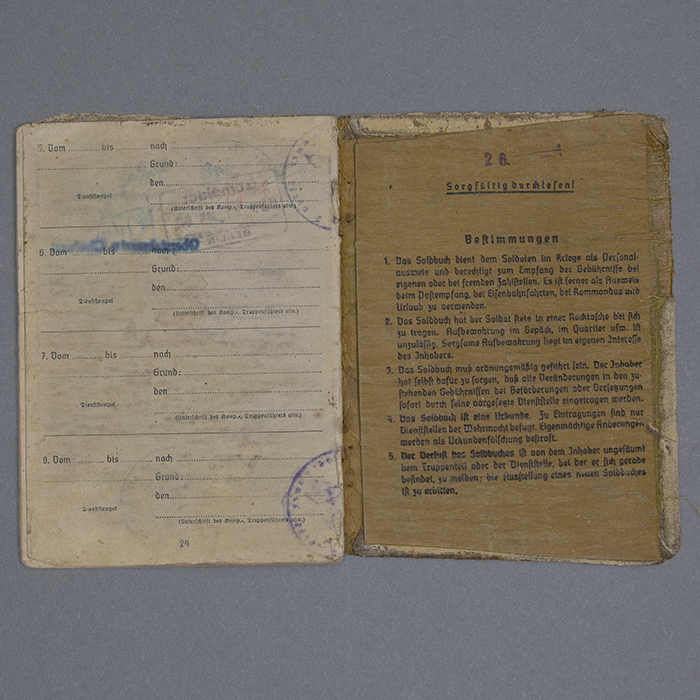 5. Vom ........ bis ........ nach
Grund:
den
Dienststempel
(Unterschrift des Komp.-, Truppenführers usw.)
6. Vom ........ bis ........ nach
Grund:
den
Dienststempel
(Unterschrift des Komp.-, Truppenführers usw.)
7. Vom ........ bis ........ nach
Grund:
den
Dienststempel
(Unterschrift des Komp.-, Truppenführers usw.)
8. Vom ........ bis ........ nach
Grund:
den
Dienststempel
(Unterschrift des Komp.-, Truppenführers usw.)
24
26.
Sorgfältig durchlesen!
Bestimmungen
1. Das Soldbuch dient dem Soldaten im Kriege als Personal-
ausweis und berechtigt zum Empfang der Gebührnisse bei
eigenen oder bei fremden Zahlstellen. Es ist ferner als Ausweis
beim Postempfang, bei Eisenbahnfahrten, bei Kommandos und
Urlaub zu verwenden.
2. Das Soldbuch hat der Soldat stets in einer Rocktasche bei sich
zu tragen. Aufbewahrung im Gepäck, im Quartier usw. ist
unzulässig. Sorgsame Aufbewahrung liegt im eigenen Interesse
des Inhabers.
3. Das Soldbuch muß ordnungsmäßig geführt sein. Der Inhaber
hat selbst dafür zu sorgen, daß alle Veränderungen in den zu-
stehenden Gebührnissen bei Beförderungen oder Versetzungen
sofort durch seine vorgesetzte Dienststelle eingetragen werden.
4. Das Soldbuch ist eine Urkunde. Zu Eintragungen sind nur
Dienststellen der Wehrmacht befugt. Eigenmächtige Änderungen
werden als Urkundenfälschung bestraft.
5. Der Verlust des Soldbuches ist von dem Inhaber ungesäumt
dem Truppenteil oder der Dienststelle, bei der er sich gerade
befindet, zu melden; die Ausstellung eines neuen Soldbuches
ist zu erbitten.